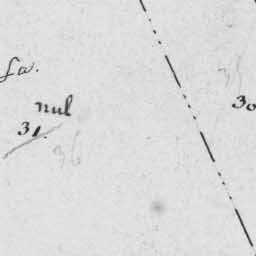 la.
nul
30
31.
36